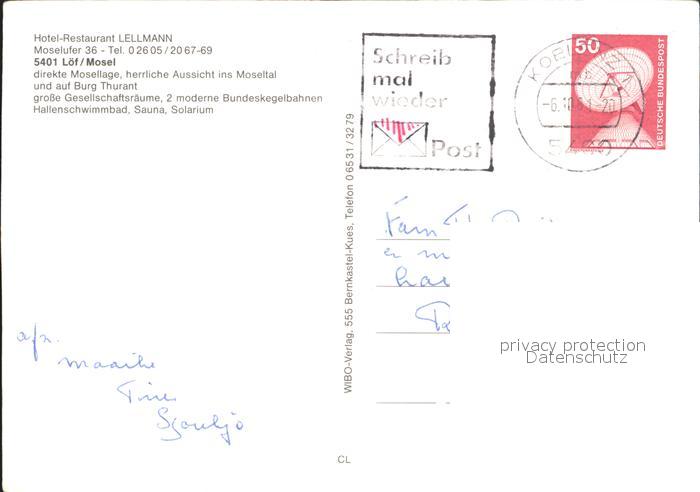 Hotel-Restaurant LELLMANN
Moselufer 36 - Tel. 0 26 05 / 20 67-69
5401 Löf/Mosel
direkte Mosellage, herrliche Aussicht ins Moseltal
und auf Burg Thurant
große Gesellschaftsräume, 2 moderne Bundeskegelbahnen
Hallenschwimmbad, Sauna, Solarium
Schreib
mal
wieder
Post
50
DEUTSCHE BUNDESPOST
WIBO-Verlag, 555 Bernkastel-Kues, Telefon 0 65 31 / 32 79
Fam
afz.
Maaike
privacy protection
Datenschutz
CL